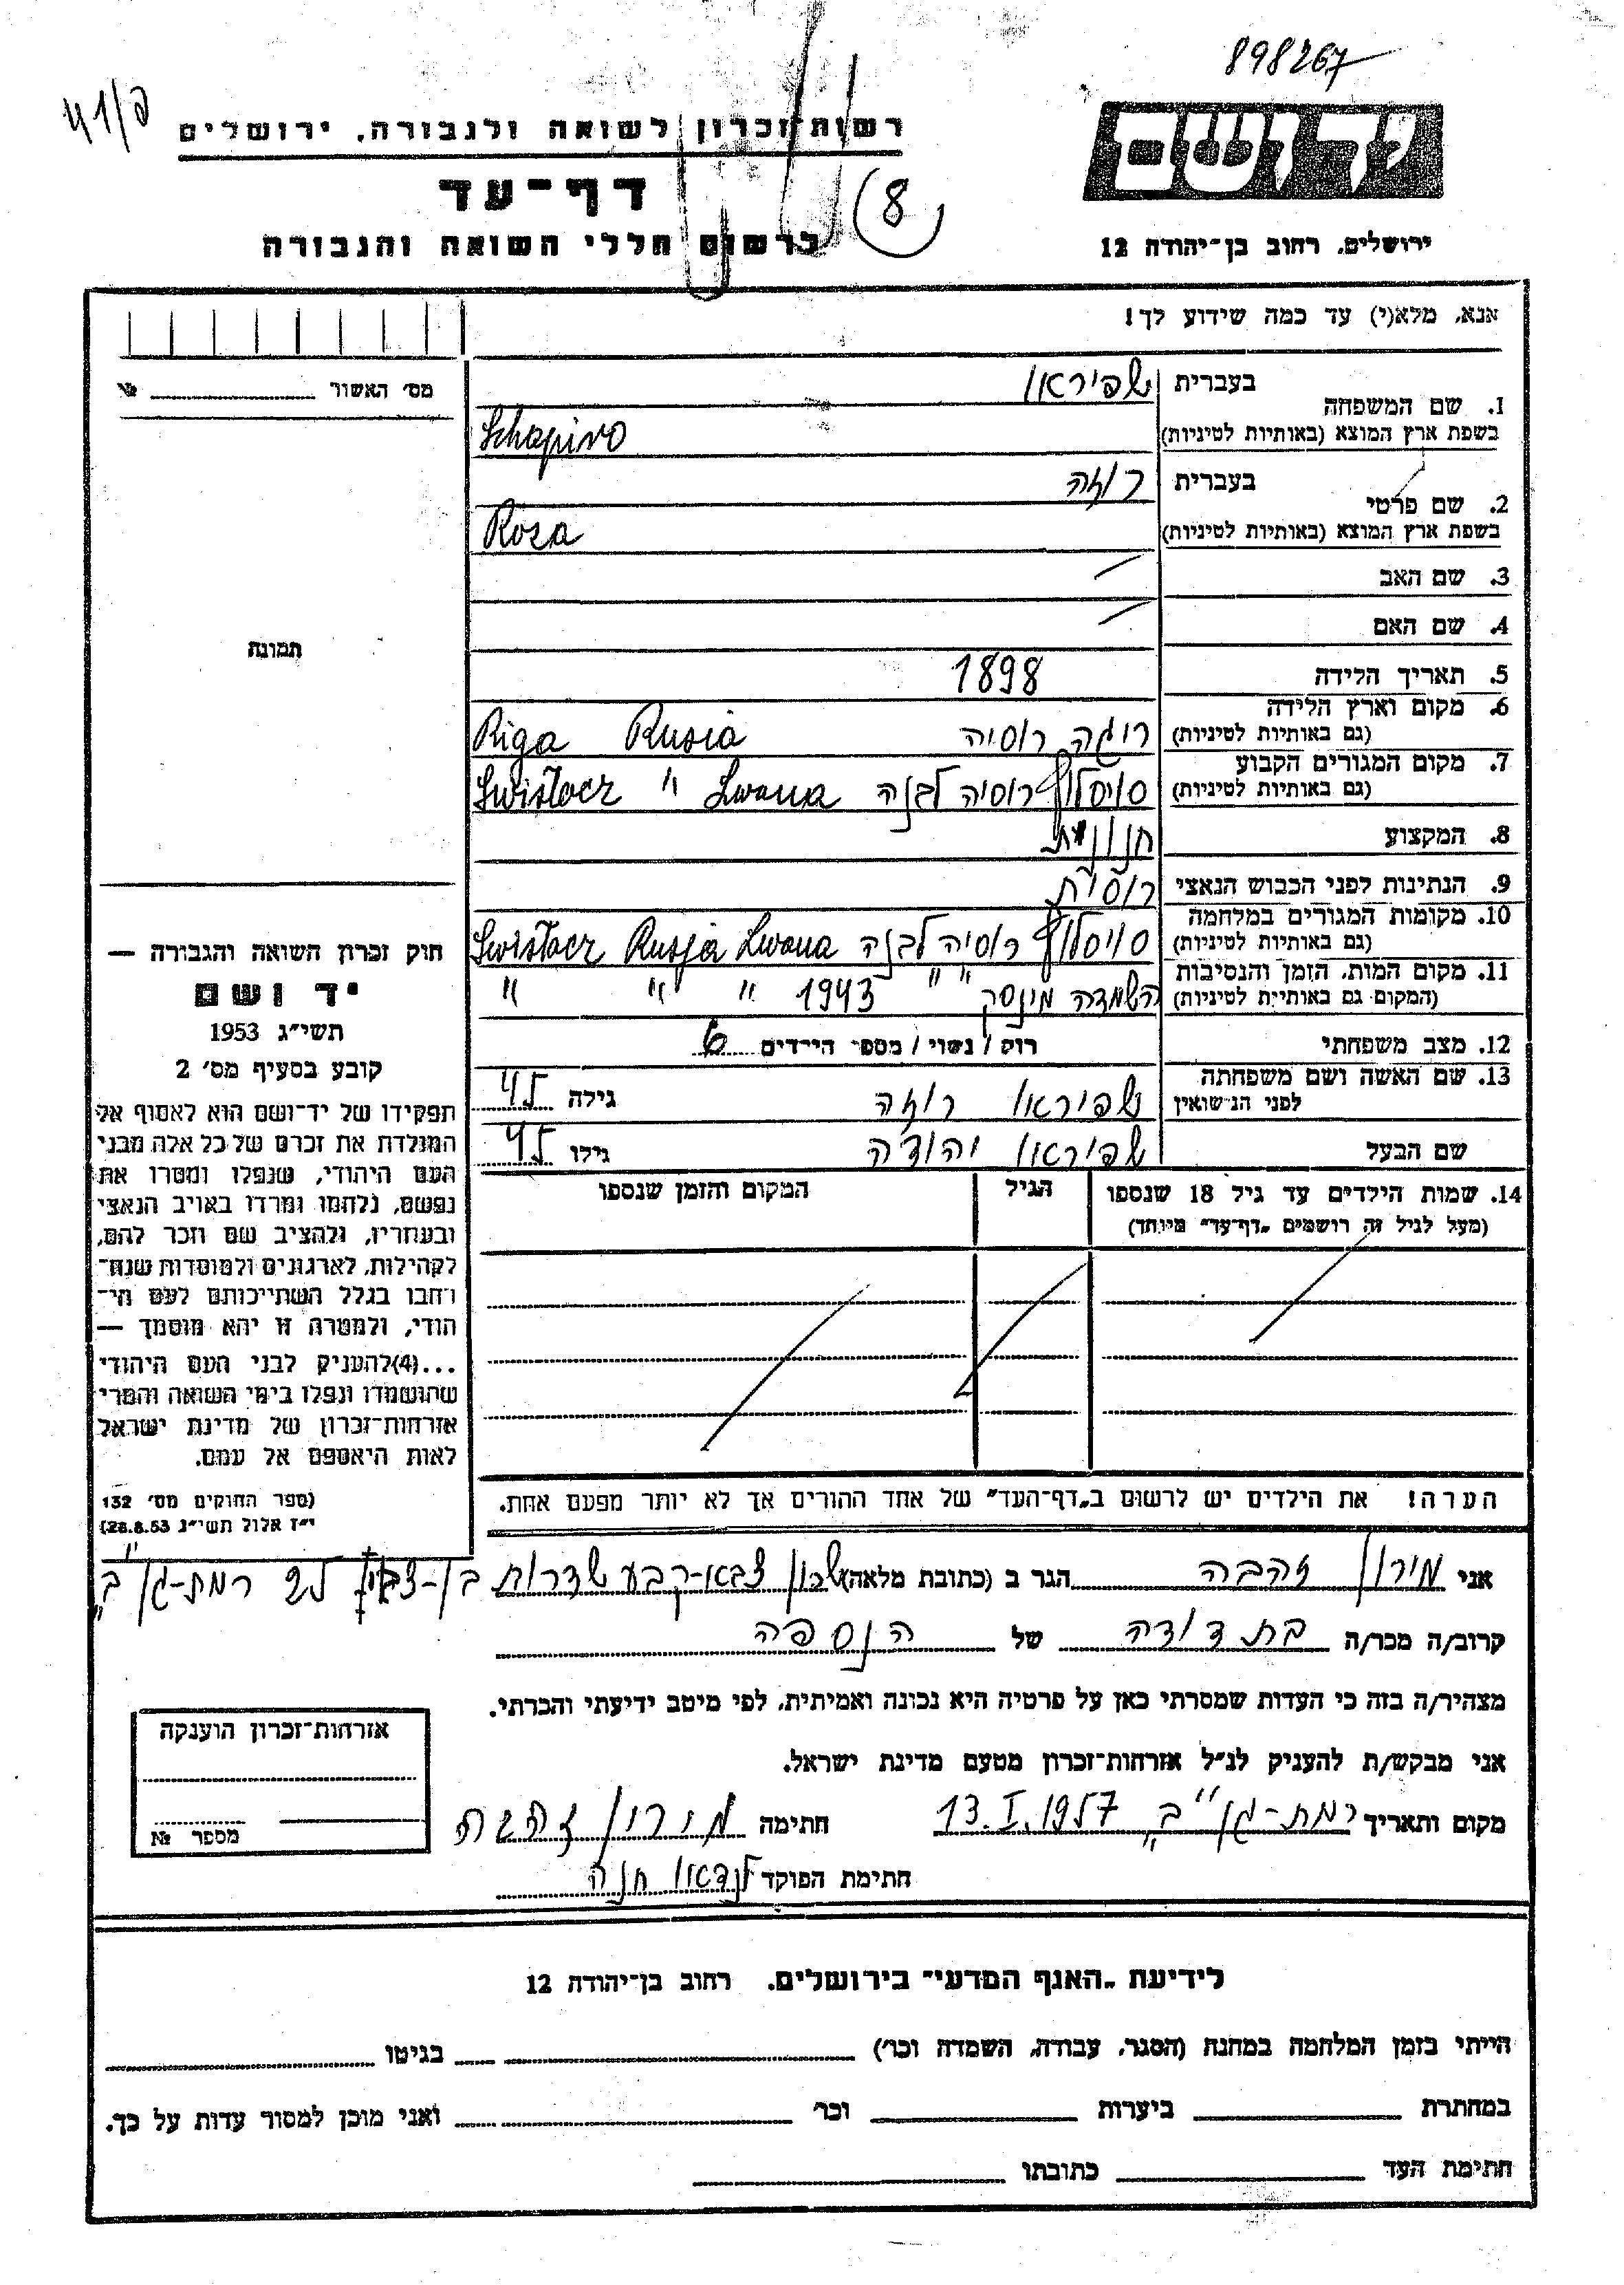 898267
41/פ
רשות-זכרון לשואה ולגבורה, ירושלים
יד ושם
דף-עד
8
לרשום חללי השואה והגבורה
ירושלים, רחוב בן-יהודה 12
אנא, מלא(י) עד כמה שידוע לך!
מס׳ האשור №
1. שם המשפחה בעברית שפיראו
בשפת ארץ המוצא (באותיות לטיניות) Schapiro
2. שם פרטי בעברית רוזה
בשפת ארץ המוצא (באותיות לטיניות) Roza
3. שם האב
4. שם האם
תמונה
5. תאריך הלידה 1898
6. מקום וארץ הלידה (גם באותיות לטיניות) ריגה רוסיה Riga Rusia
7. מקום המגורים הקבוע (גם באותיות לטיניות) סויסלוץ רוסיה לבנה Swisłocz " Lwana
8. המקצוע חנונית
9. הנתינות לפני הכבוש הנאצי רוסית
10. מקומות המגורים במלחמה (גם באותיות לטיניות) סויסלוץ רוסיה לבנה Swisłocz Rusja Lwana
11. מקום המות, הזמן והנסיבות (המקום גם באותיות לטיניות) השמדה מינסק " " 1943 " " "
12. מצב משפחתי רווק / נשוי / מספר הילדים 6
13. שם האשה ושם משפחתה לפני הנישואין שפיראו רוזה גילה 45
שם הבעל שפיראו יהודה גילו 45
14. שמות הילדים עד גיל 18 שנספו הגיל המקום והזמן שנספו
(מעל לגיל זה רושמים "דף-עד" מיוחד)
הערה! את הילדים יש לרשום ב"דף-העד" של אחד ההורים אך לא יותר מפעם אחת.
חוק זכרון השואה והגבורה —
יד ושם
תשי״ג 1953
קובע בסעיף מס׳ 2
תפקידו של יד-ושם הוא לאסוף אל
המולדת את זכרם של כל אלה מבני
העם היהודי, שנפלו ומסרו את
נפשם, נלחמו ומרדו באויב הנאצי
ובעוזריו, ולהציב שם וזכר להם,
לקהילות, לארגונים ולמוסדות שנח-
רבו בגלל השתייכותם לעם הי-
הודי, ולמטרה זו יהא מוסמך —
...(4)להעניק לבני העם היהודי
שהושמדו ונפלו בימי השואה והמרי
אזרחות-זכרון של מדינת ישראל
לאות היאספם אל עמם.
(ספר החוקים מס׳ 132
י״ז אלול תשי״ג 28.8.53)
אני מירון זהבה הגר ב (כתובת מלאה) שכון צבא-קבע שדרות בן-צבי רמת-גן "ב"
קרוב/ה מכר/ה בת דודה של הנספה
מצהיר/ה בזה כי העדות שמסרתי כאן על פרטיה היא נכונה ואמיתית, לפי מיטב ידיעתי והכרתי.
אני מבקש/ת להעניק לנ״ל אזרחות-זכרון מטעם מדינת ישראל.
מקום ותאריך רמת-גן "ב" 13.I.1957 חתימה מירון זהבה
חתימת הפוקד לנדאו חנה
אזרחות-זכרון הוענקה
מספר №
לידיעת "האגף המדעי" בירושלים, רחוב בן-יהודה 12
הייתי בזמן המלחמה במחנה (הסגר, עבודה, השמדה וכו׳) בגיטו
במחתרת ביערות וכו׳ ואני מוכן למסור עדות על כך.
חתימת העד כתובתו